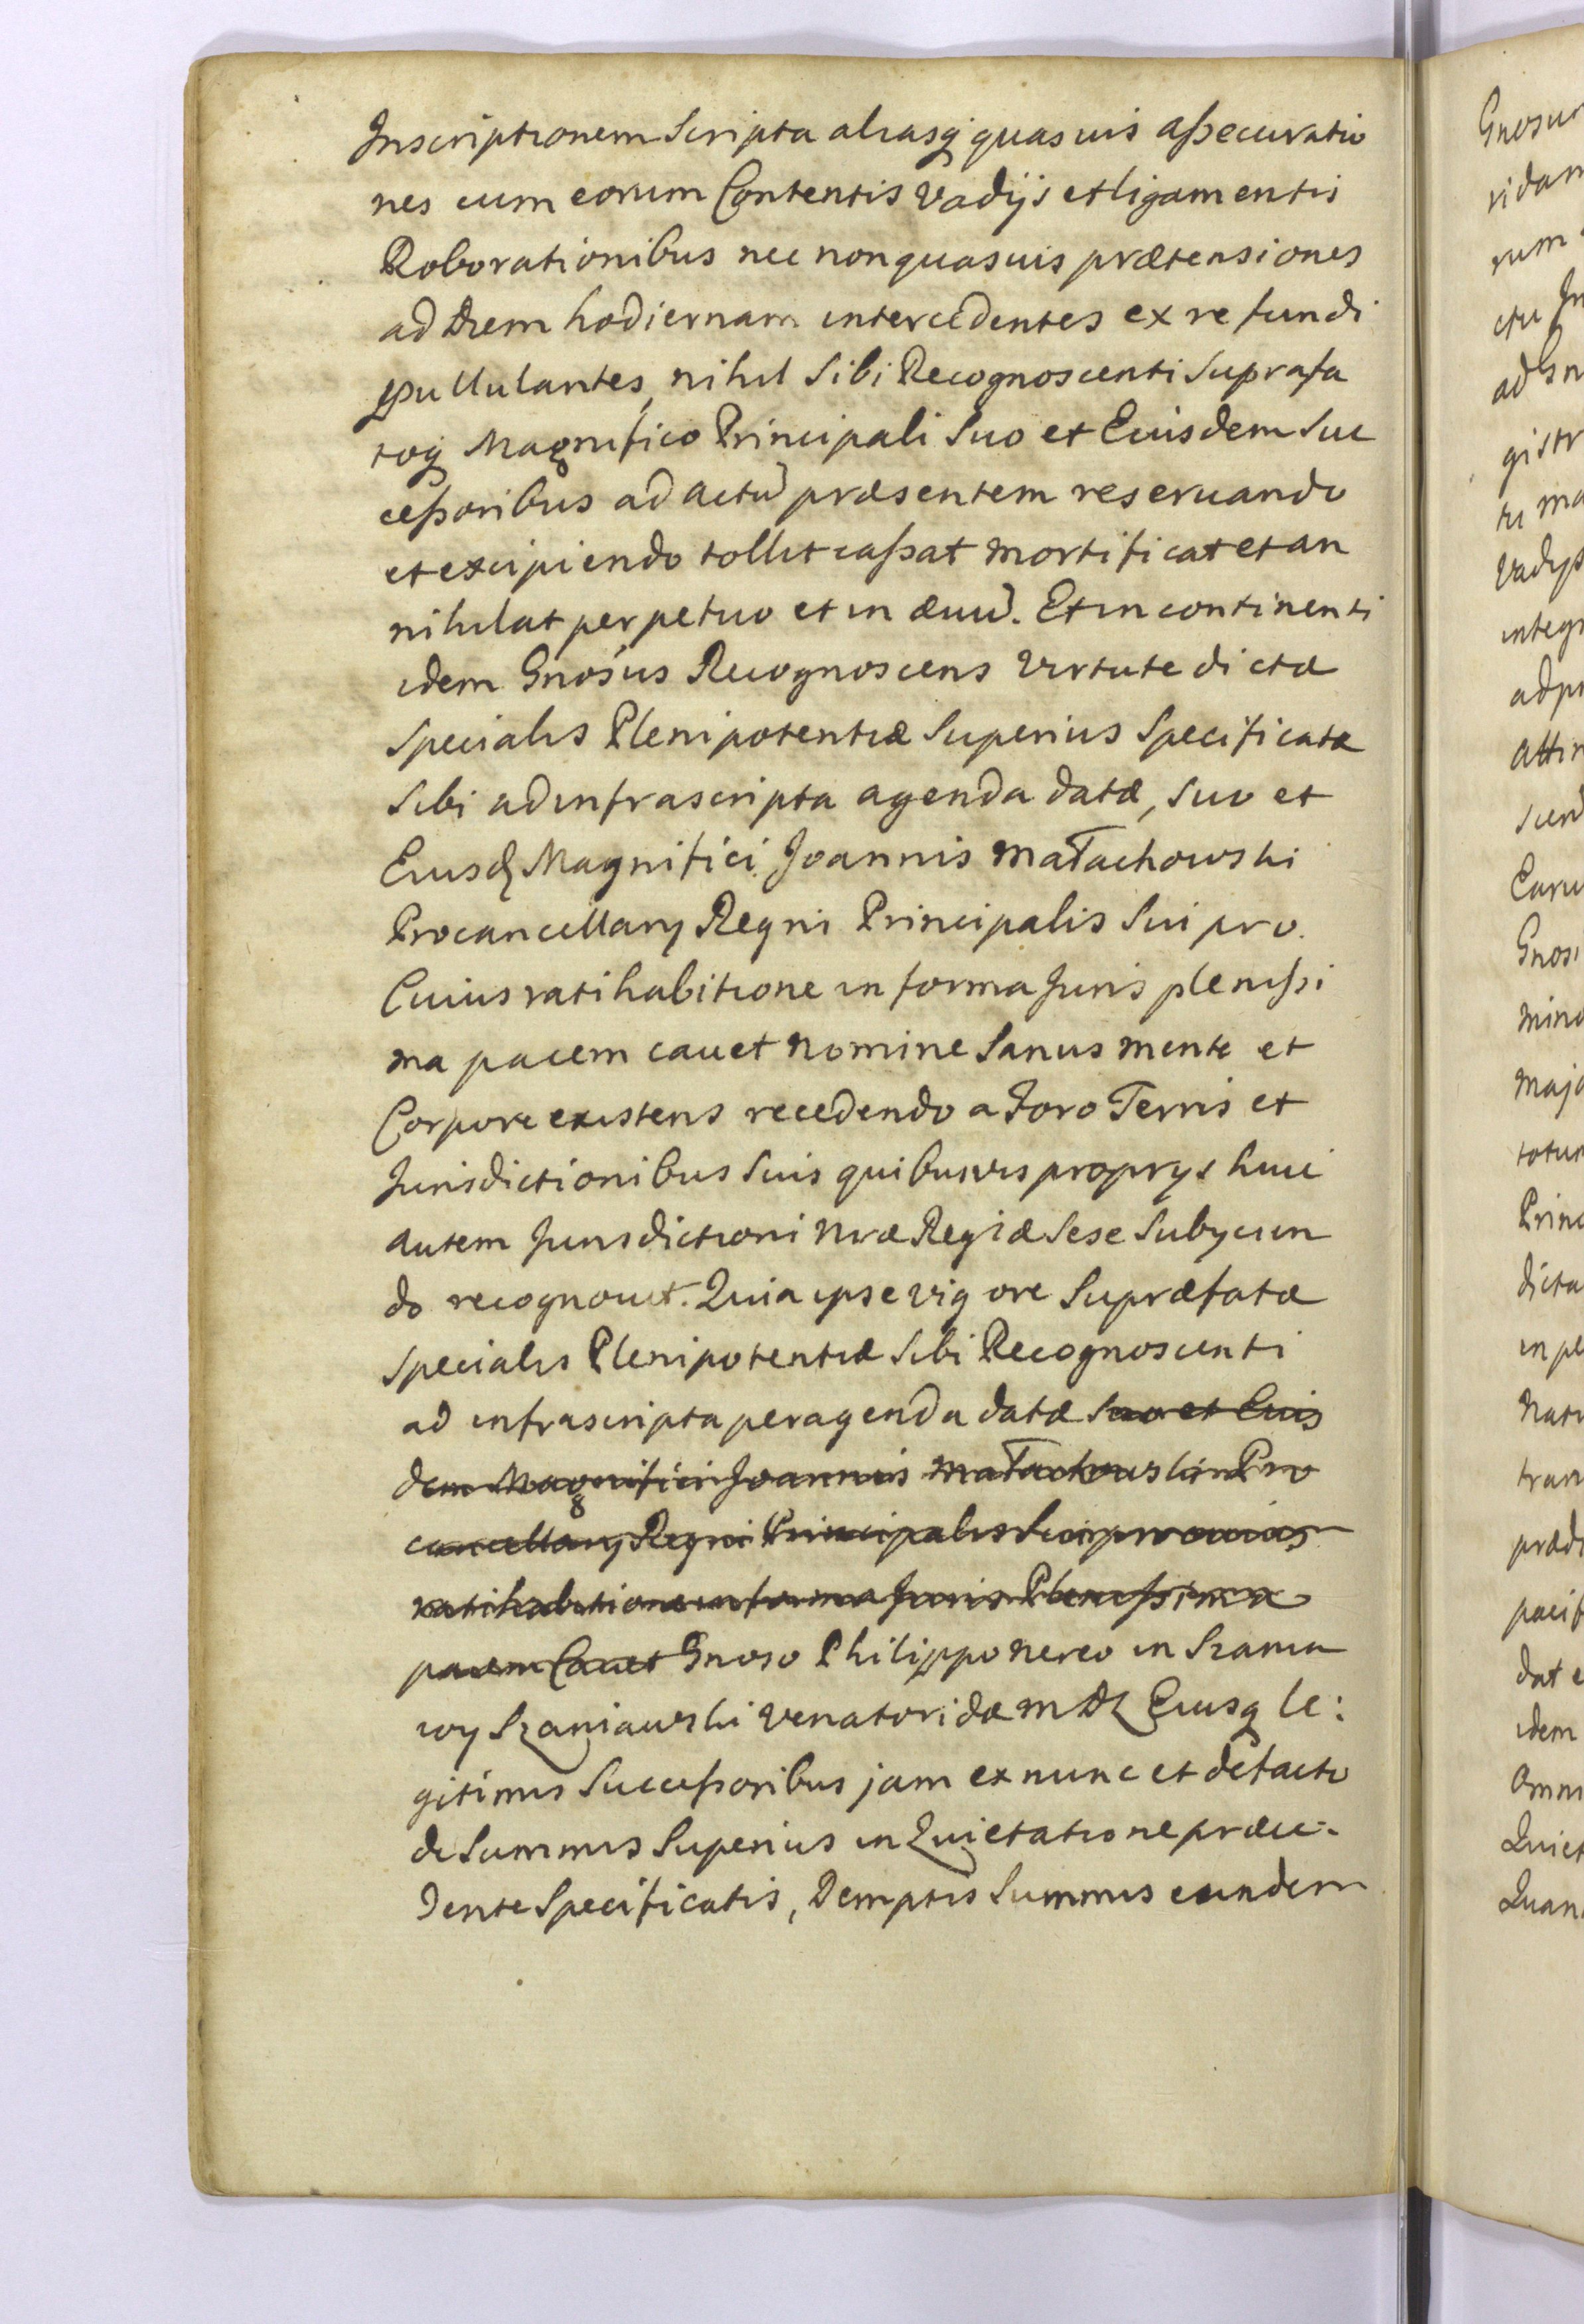 Inscriptionem Scripta aliasq quasuis assecuratio
nes cum eorum Contentis Vadijs et ligamentis
Roborationibus nec non quasuis prætensiones
ad diem hodiernam intercedentes ex re fundi
pullulantes, nihil Sibi Recognoscenti Suprafa
toq Magnifico Principali Suo et Eiusdem Suc
cessoribus ad actu præsentem reseruando
et excipiendo tollit cassat mortificat et an
nihilat perpetuo et in æuu. Et in continenti
idem Gnosus Recognoscens Virtute dictæ
Specialis Plenipotentiæ Superius Specificatæ
Sibi ad infrascripta agenda datæ, Suo et
Eiusd Magnifici Joannis Małachowski
Procancellary Regni Principalis Sui pro
Cuius ratihabitione in forma Juris plenissi
ma pacem cauet nomine Sanus mente et
Corpore existens recedendo a Foro Terris et
Jurisdictionibus Suis quibusuis proprys huic
autem Jurisdictioni nræ Regiæ Sese Subycien
do recognouit. Quia ipse vigore Supræfatæ
Specialis Plenipotentiæ Sibi Recognoscenti
ad infrascripta peragenda datæ Suo et Eius
dem Magnifici Joannis Małachowski Pro
cancellary Regni Principalis Sui pro cuius
ratihabitione in forma Juris Plenissima
pacem Cauet Gnoso Philippo Nereo in Szania
wy Szaniawski Venatoridæ Eiusq le:
gitimis Successoribus jam ex nunc et de facto
de Summis Superius in Quietatione præce-
dente Specificatis, Demptis Summis eundem
Gnosu
ridam
rum
ctu In
ad Gn
gistr
tu ma
Vadys
integr
ad pr
Attin
scend
Earu
Gnosi
mino
majo
totum
Princ
dicta
in pl
Natu
tran
prædi
pacif
dat e
idem
Omni
Quiet
Quan